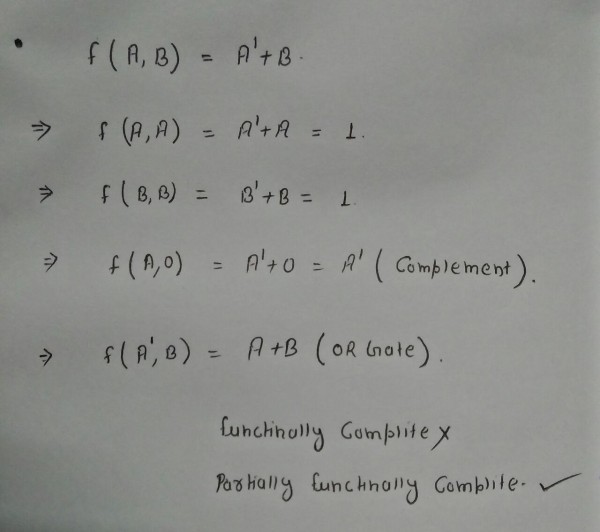 • f(A, B) = A' + B.
⇒ f(A, A) = A' + A = 1.
⇒ f(B, B) = B' + B = 1
⇒ f(A, 0) = A' + 0 = A' (Complement).
⇒ f(A', B) = A + B (OR Gate).
functinolly Complite ×
Partially functinally Complite. ✓